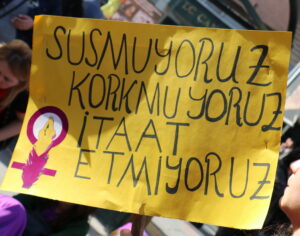 SUSMUYORUZ
KORKMUYORUZ
İTAAT
ETMİYORUZ